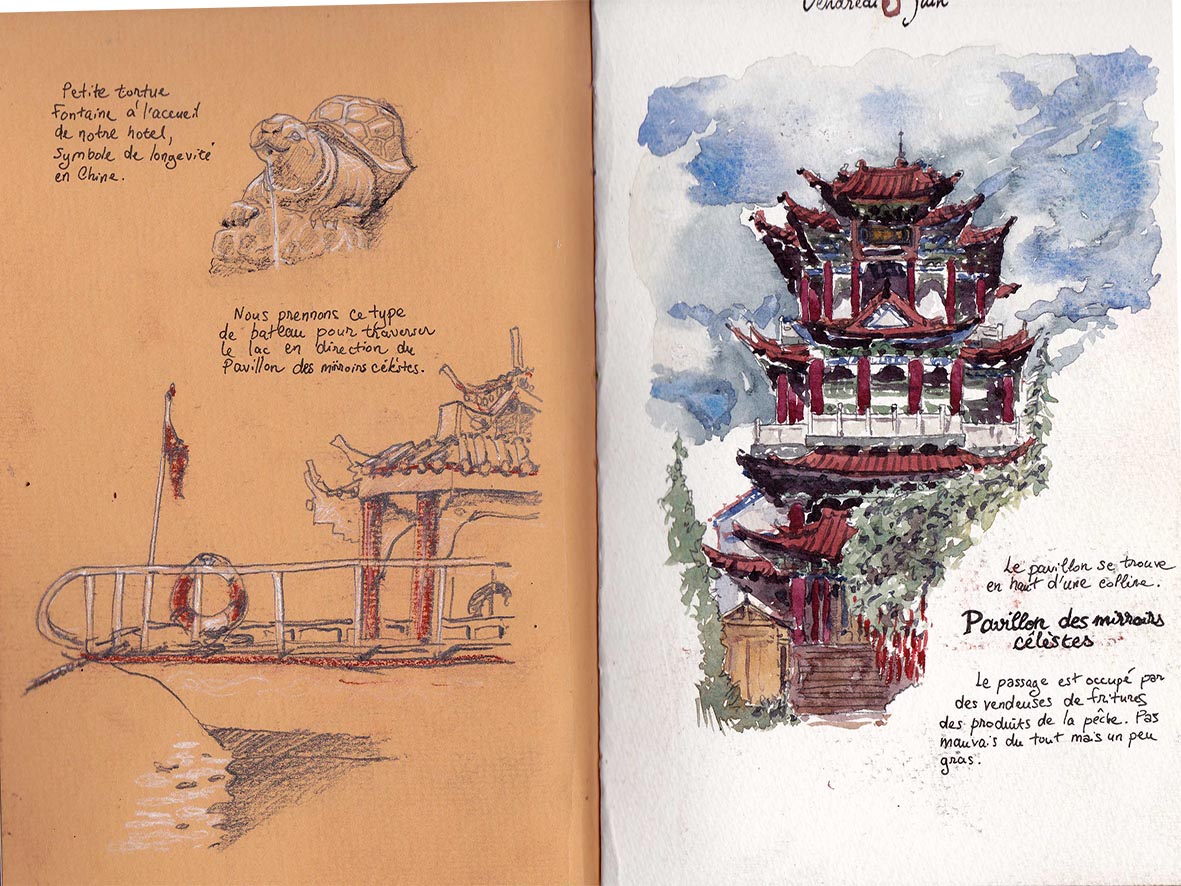 Petite tortue
Fontaine à l'aceueil
de notre hotel,
Symbole de longevité
en Chine.
Nous prennons ce type
de bateau pour traverser
le lac en direction du
Pavillon des mirroirs célèstes.
Vendredi 8 Juin
Le pavillon se trouve
en haut d'une colline.
Pavillon des mirroirs
célèstes
Le passage est occupé par
des vendeuses de fritures
des produits de la pêche. Pas
mauvais du tout mais un peu
gras.